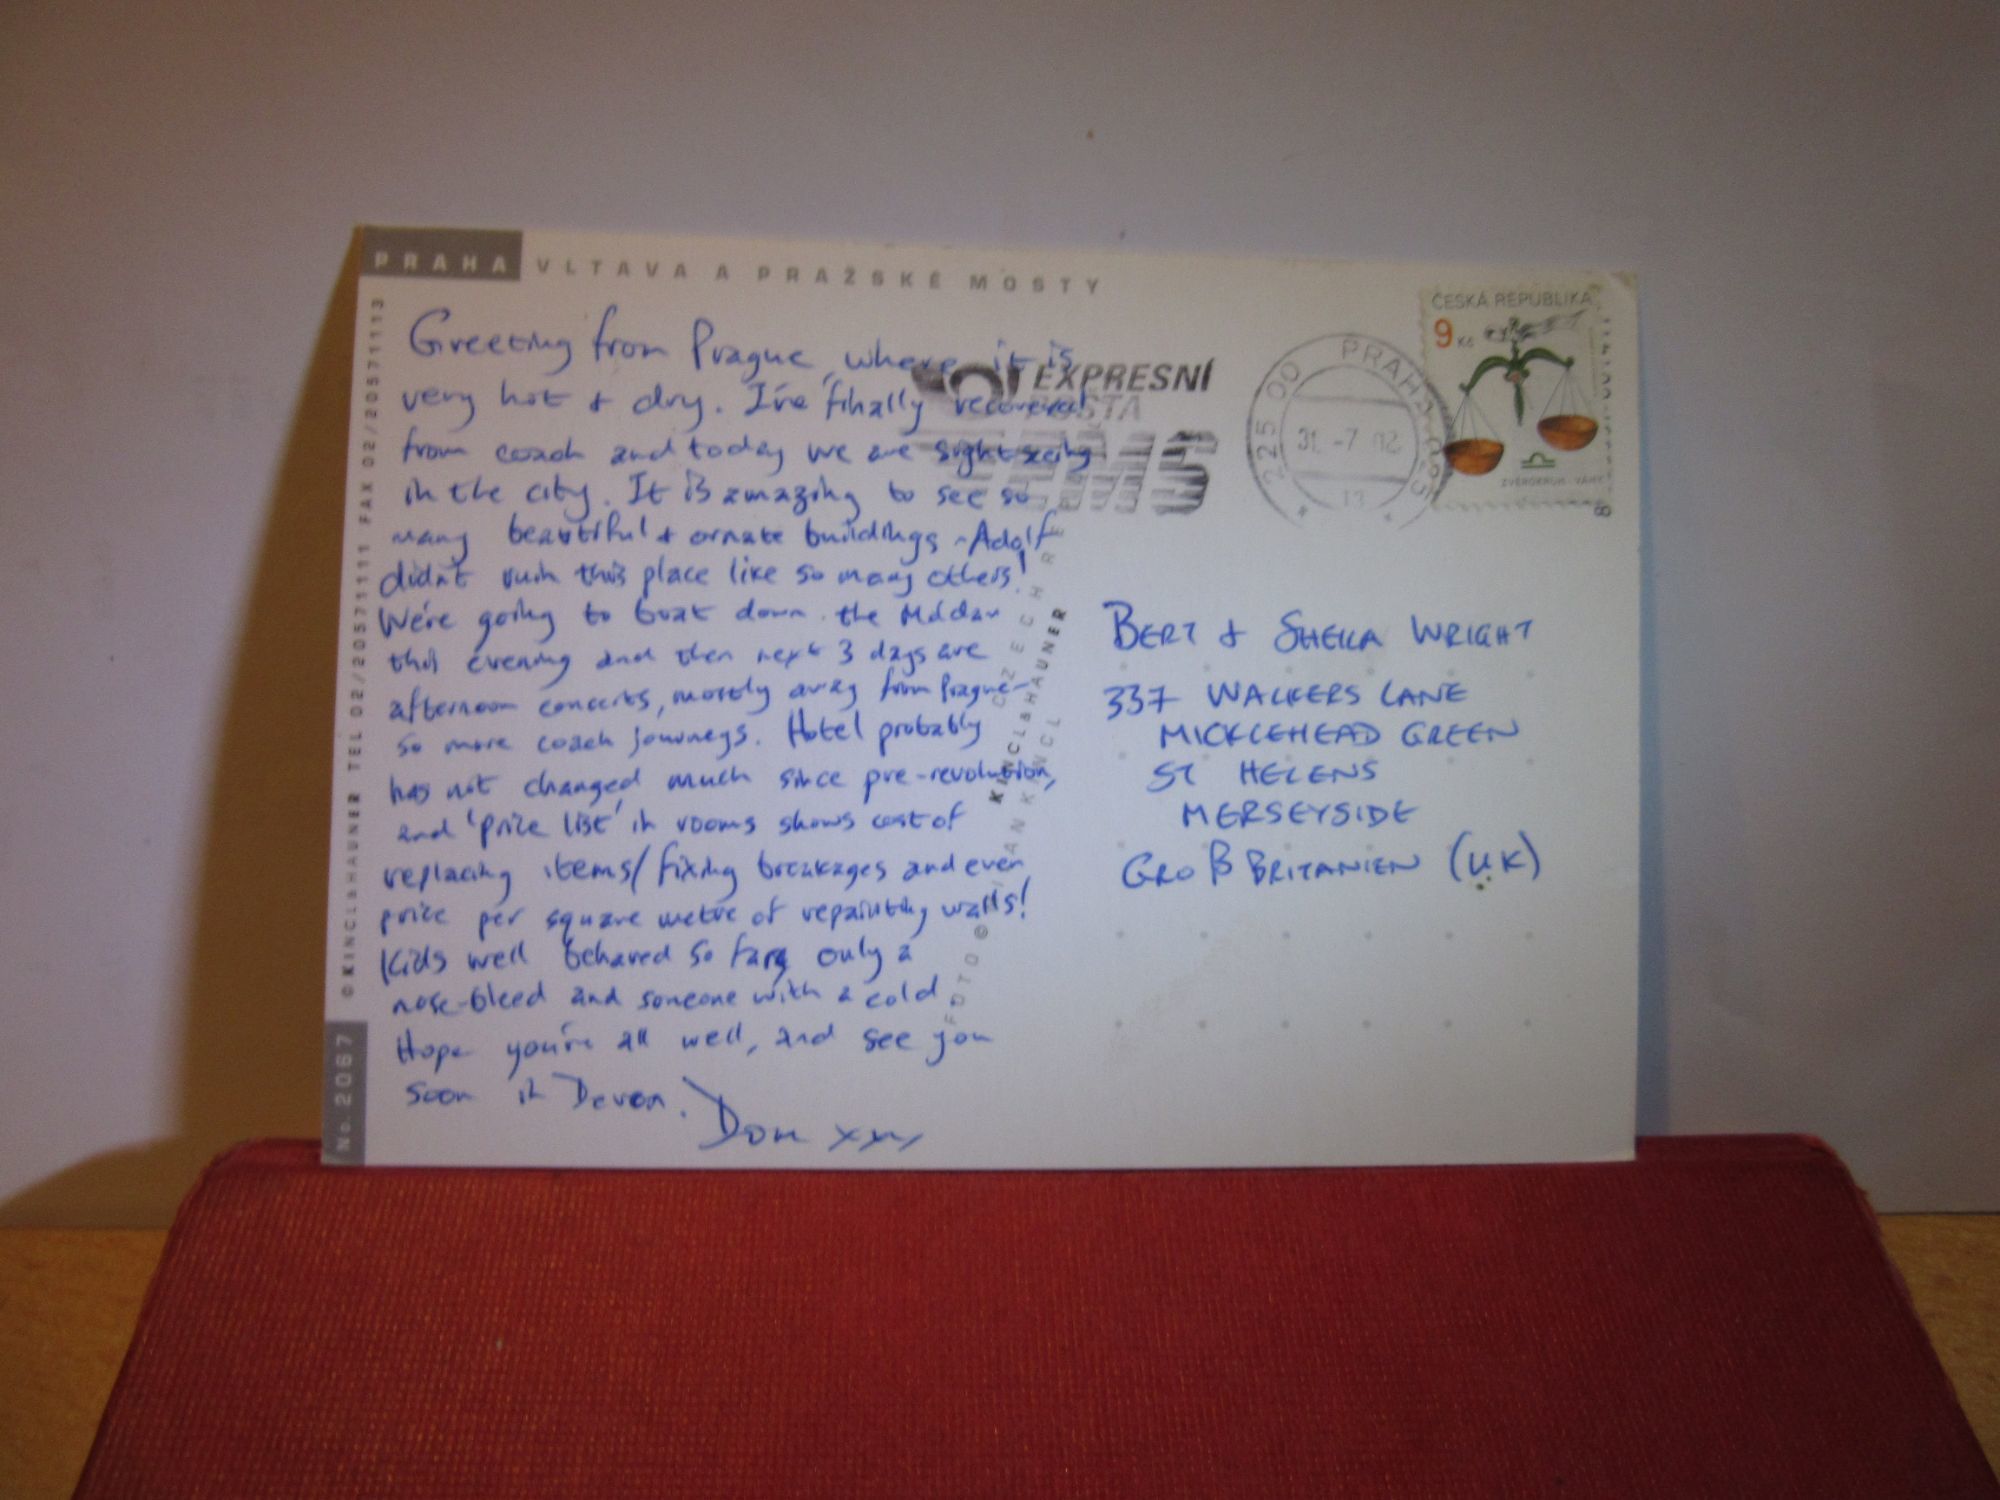 PRAHA VLTAVA A PRAŽSKÉ MOSTY
Greeting from Prague, where it is
very hot + dry. I've finally recovered
from coach and today we are sightseeing
in the city. It is amazing to see so
many beautiful + ornate buildings - Adolf
didn't ruin this place like so many others!
We're going to boat down the
this evening and then next 3 days are
afternoon concerts, mostly away from Prague -
so more coach journeys. Hotel probably
has not changed much since pre-revolution,
and 'price list' in rooms shows cost of
replacing items/fixing breakages and even
price per square metre of repainting walls!
Kids well behaved so far, only a
nose-bleed and someone with a cold.
Hope you're all well, and see you
soon in Devon.
Dom xxx
EXPRESNÍ
POSTA
EMS
225 00 PRAHA 025
31 -7 02
13
ČESKÁ REPUBLIKA
9 Kč
ZVĚROKRUH - VÁHY
BERT & SHEILA WRIGHT
337 WALKERS LANE
MICKLEHEAD GREEN
ST HELENS
MERSEYSIDE
GROßBRITANIEN (UK)
© KINCL & HAUNER TEL 02/20571111 FAX 02/20571113
No. 2067
FOTO © JAN KINCL
KINCL & HAUNER
CZECH